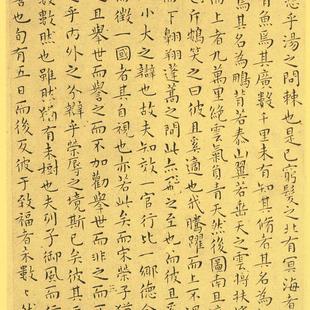 悲乎湯之問棘也是已窮髮之北有冥海者
有魚焉其廣數千里未有知其脩者其名為
其名為鵬背若泰山翼若垂天之雲摶扶
上者九萬里絕雲氣負青天然後圖南且
也斥鴳笑之曰彼且奚適也我騰躍而上不過
而下翱翔蓬蒿之間此亦飛之至也而彼且奚
小大之辯也故夫知效一官行比一鄉德合
而徵一國者其自視也亦若此矣而宋榮子猶
之且舉世而譽之而不加勸舉世而非之而
乎內外之分辯乎榮辱之境斯已矣彼其
數數然也雖然猶有未樹也夫列子御風而行
善也旬有五日而後反彼於致福者未數數然